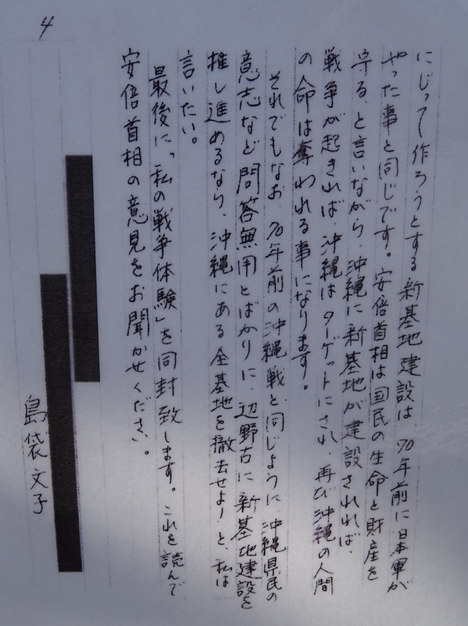 4
にじって作ろうとする新基地建設は、70年前に日本軍が
やった事と同じです。安倍首相は国民の生命と財産を
守る、と言いながら、沖縄に新基地が建設されれば、
戦争が起きれば、沖縄はターゲットにされ、再び沖縄の人間
の人命は奪われる事になります。
それでもなお、70年前の沖縄戦と同じように沖縄県民の
意志など問答無用とばかりに、辺野古に新基地建設を
推し進めるなり、沖縄にある全基地を撤去せよ！と私は
言いたい。
最後に、「私の戦争体験」を同封致します。これを読んで
安倍首相の意見をお聞かせください。
島袋文子